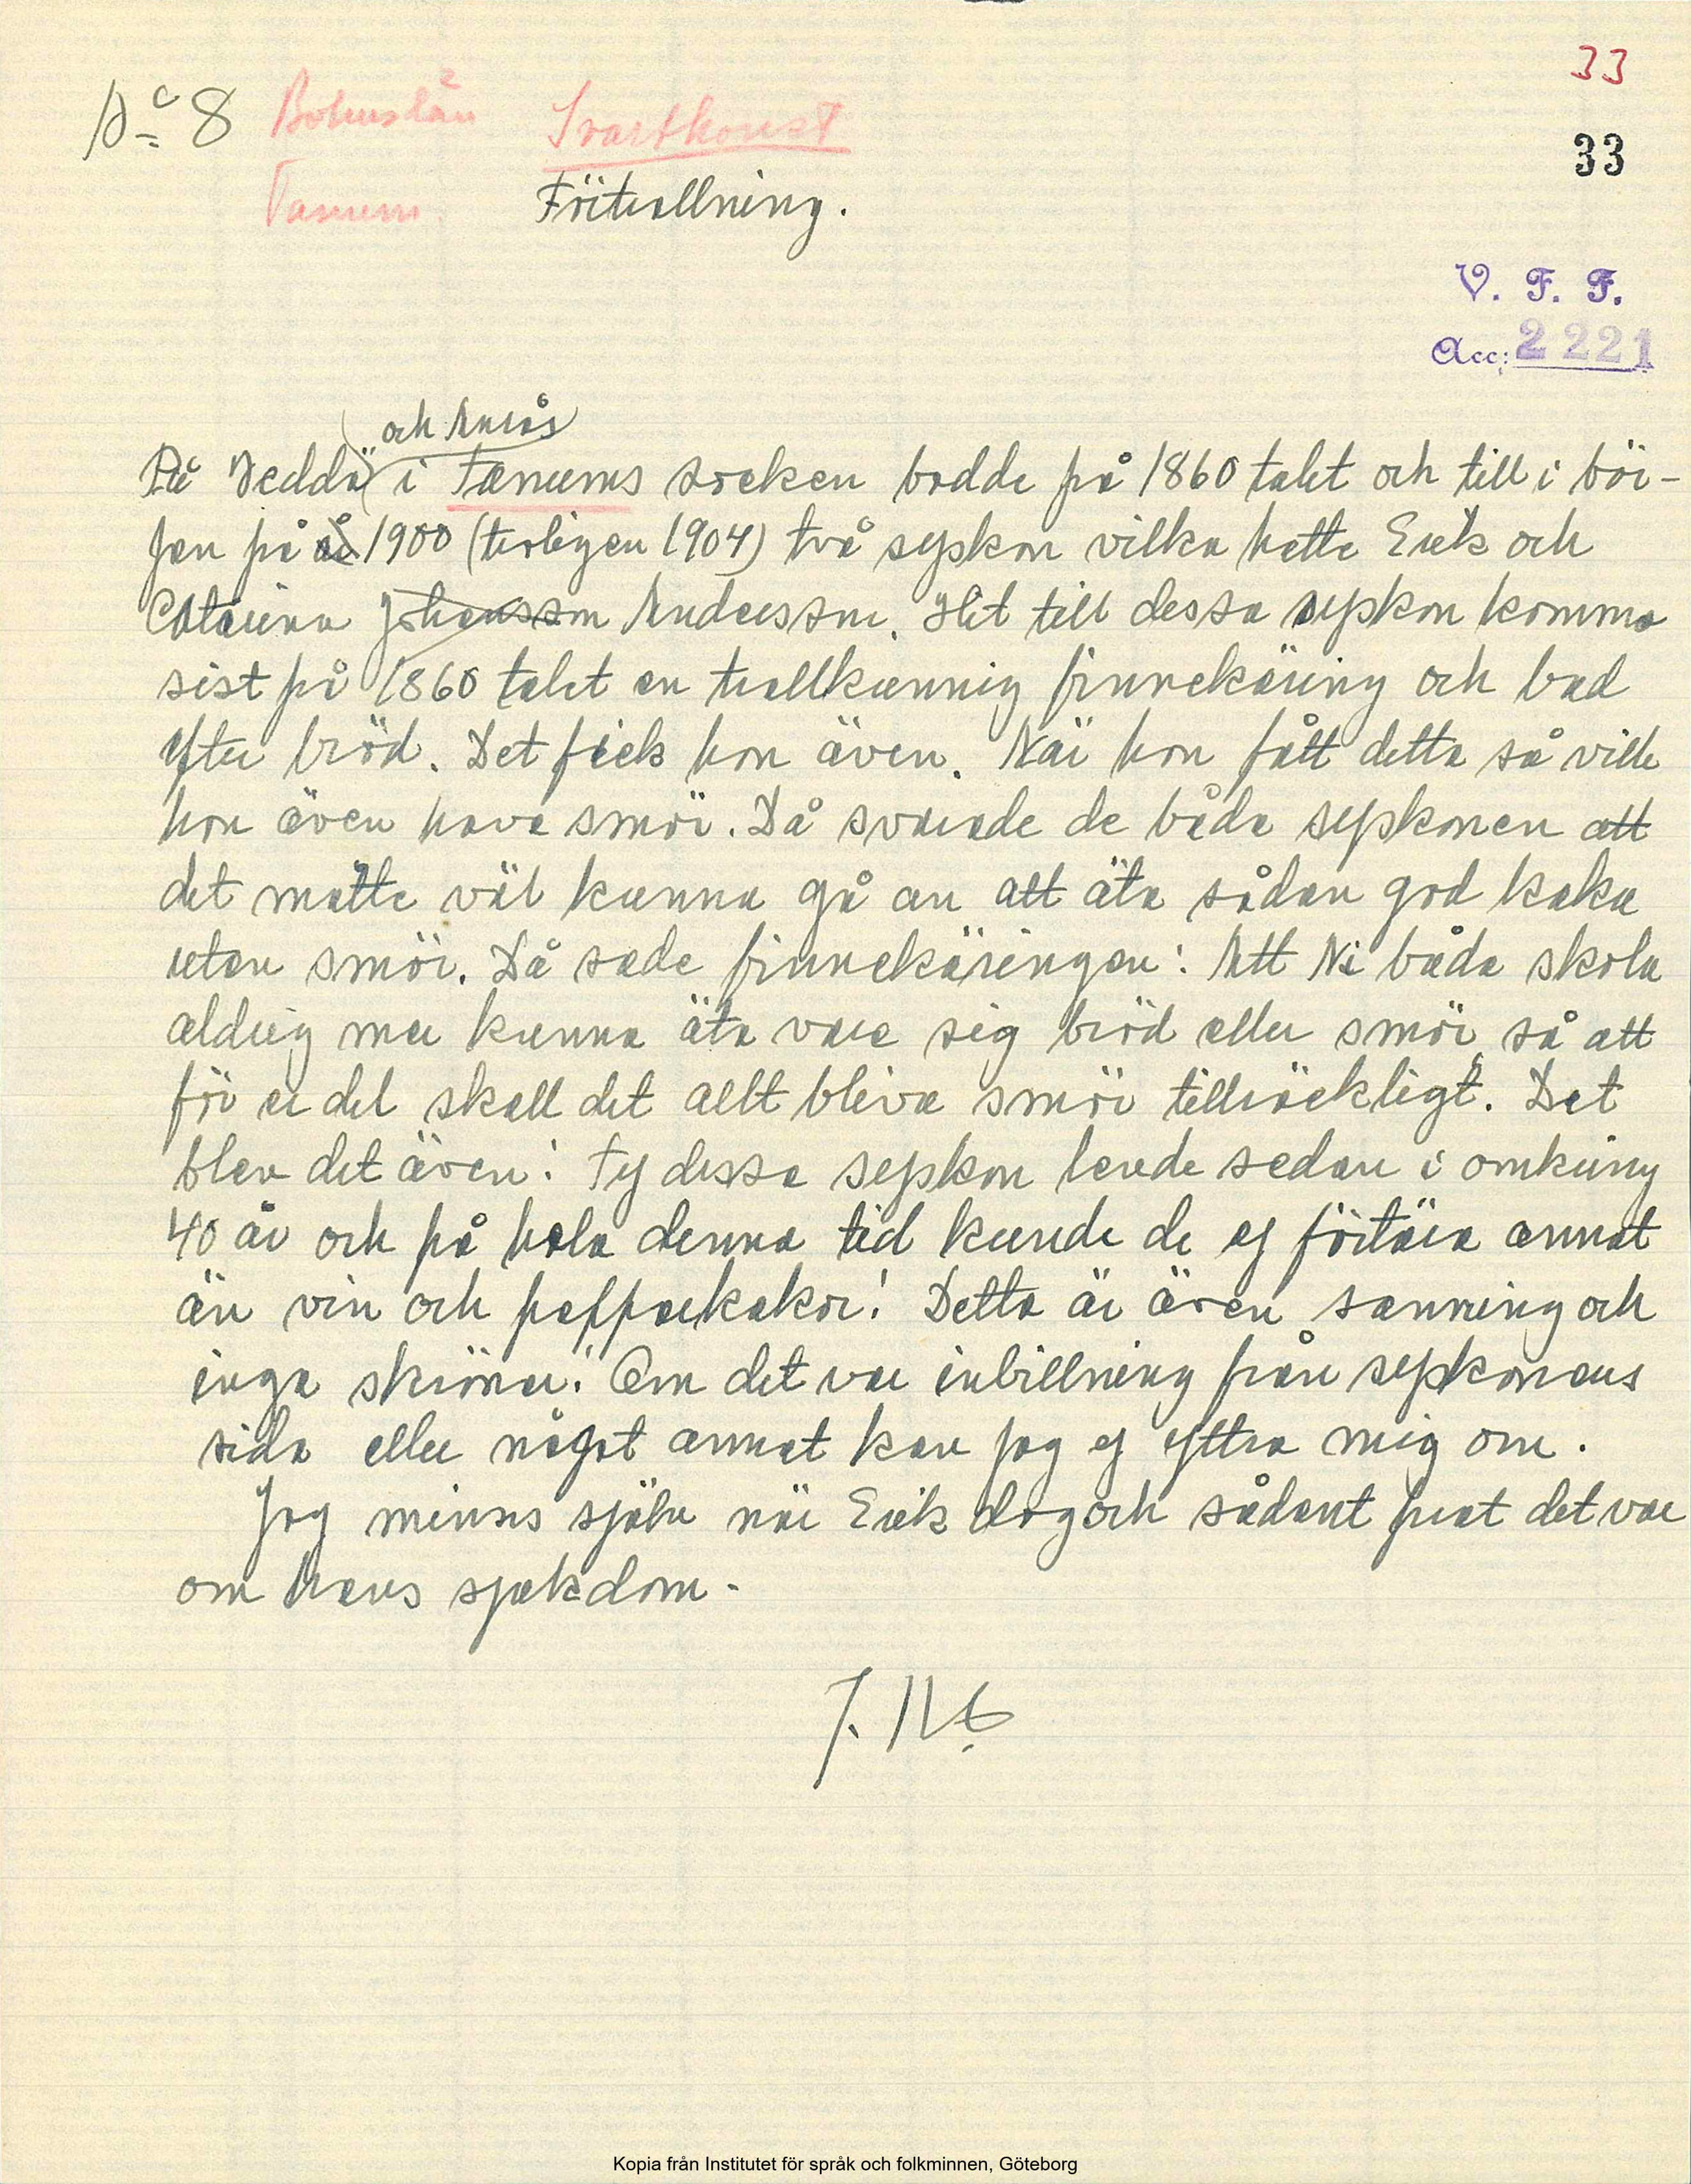 33
No 8 Bohuslän Svartkonst
33
Tanum. Förtrollning.
V. F. F.
Acc: 2221
och Anrås
På Veddö i Tanums socken bodde på 1860 talet och till i bör-
jan på å 1900 (troligen 1904) två syskon vilka hette Erik och
Catarina Johansson Andersson. Hit till dessa syskon komma
sist på 1860 talet en trollkunnig finnekäring och bad
efter bröd. Det fick hon även. När hon fått detta så ville
hon även hava smör. Då svarade de båda syskonen att
det måtte väl kunna gå an att äta sådan god kaka
utan smör. Då sade finnekäringen: Att Ni båda skola
aldrig mer kunna äta vare sig bröd eller smör så att
för er del skall det allt bliva smör tillräckligt. Det
blev det även! Ty dessa syskon levde sedan i omkring
40 år och på hela denna tid kunde de ej förtära annat
än vin och pepparkakor! Detta är även sanning och
inga skrönor." Om det var inbillning från syskonens
sida eller något annat kan jag ej yttra mig om.
Jag minns själv när Erik dog och sådant prat det var
om hans sjukdom.
Kopia från Institutet för språk och folkminnen, Göteborg